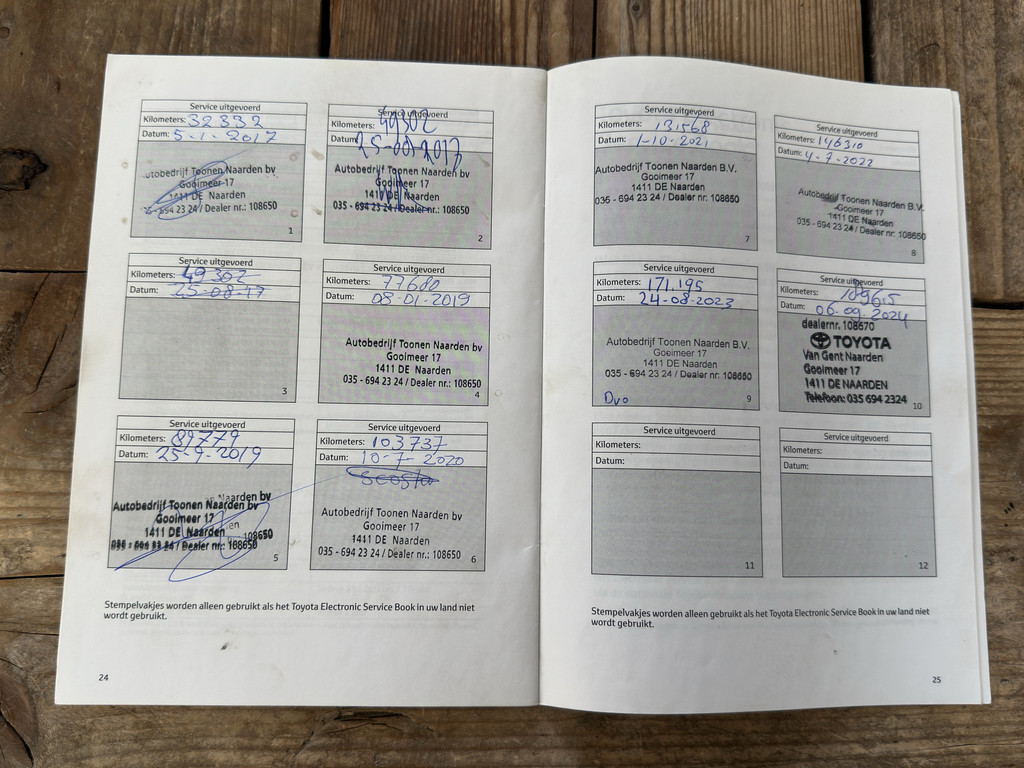 Service uitgevoerd
Kilometers: 32332
Datum: 5-1-2017
Autobedrijf Toonen Naarden bv
Gooimeer 17
1411 DE Naarden
035 - 694 23 24 / Dealer nr.: 108650
1
Service uitgevoerd
Kilometers: 49302
Datum: 25-08-2017
Autobedrijf Toonen Naarden bv
Gooimeer 17
1411 DE Naarden
035 - 694 23 24 / Dealer nr.: 108650
2
Service uitgevoerd
Kilometers: 49302
Datum: 25-08-17
3
Service uitgevoerd
Kilometers: 77680
Datum: 08-01-2019
Autobedrijf Toonen Naarden bv
Gooimeer 17
1411 DE Naarden
035 - 694 23 24 / Dealer nr.: 108650
4
Service uitgevoerd
Kilometers: 89779
Datum: 25-9-2019
Naarden bv
Autobedrijf Toonen Naarden bv
Gooimeer 17
1411 DE Naarden
035 - 694 23 24 / Dealer nr.: 108650
5
Service uitgevoerd
Kilometers: 103737
Datum: 10-7-2020
Autobedrijf Toonen Naarden bv
Gooimeer 17
1411 DE Naarden
035 - 694 23 24 / Dealer nr.: 108650
6
Stempelvakjes worden alleen gebruikt als het Toyota Electronic Service Book in uw land niet
wordt gebruikt.
24
Service uitgevoerd
Kilometers: 131568
Datum: 1-10-2021
Autobedrijf Toonen Naarden B.V.
Gooimeer 17
1411 DE Naarden
035 - 694 23 24 / Dealer nr: 108650
7
Service uitgevoerd
Kilometers: 146310
Datum: 4-7-2022
Autobedrijf Toonen Naarden B.V.
Gooimeer 17
1411 DE Naarden
035 - 694 23 24 / Dealer nr: 108650
8
Service uitgevoerd
Kilometers: 171.195
Datum: 24-08-2023
Autobedrijf Toonen Naarden B.V.
Gooimeer 17
1411 DE Naarden
035 - 694 23 24 / Dealer nr: 108650
Dvo
9
Service uitgevoerd
Kilometers: 189615
Datum: 06-09-2024
dealernr. 108670
TOYOTA
Van Gent Naarden
Gooimeer 17
1411 DE NAARDEN
Telefoon: 035 694 2324
10
Service uitgevoerd
Kilometers:
Datum:
11
Service uitgevoerd
Kilometers:
Datum:
12
Stempelvakjes worden alleen gebruikt als het Toyota Electronic Service Book in uw land niet
wordt gebruikt.
25